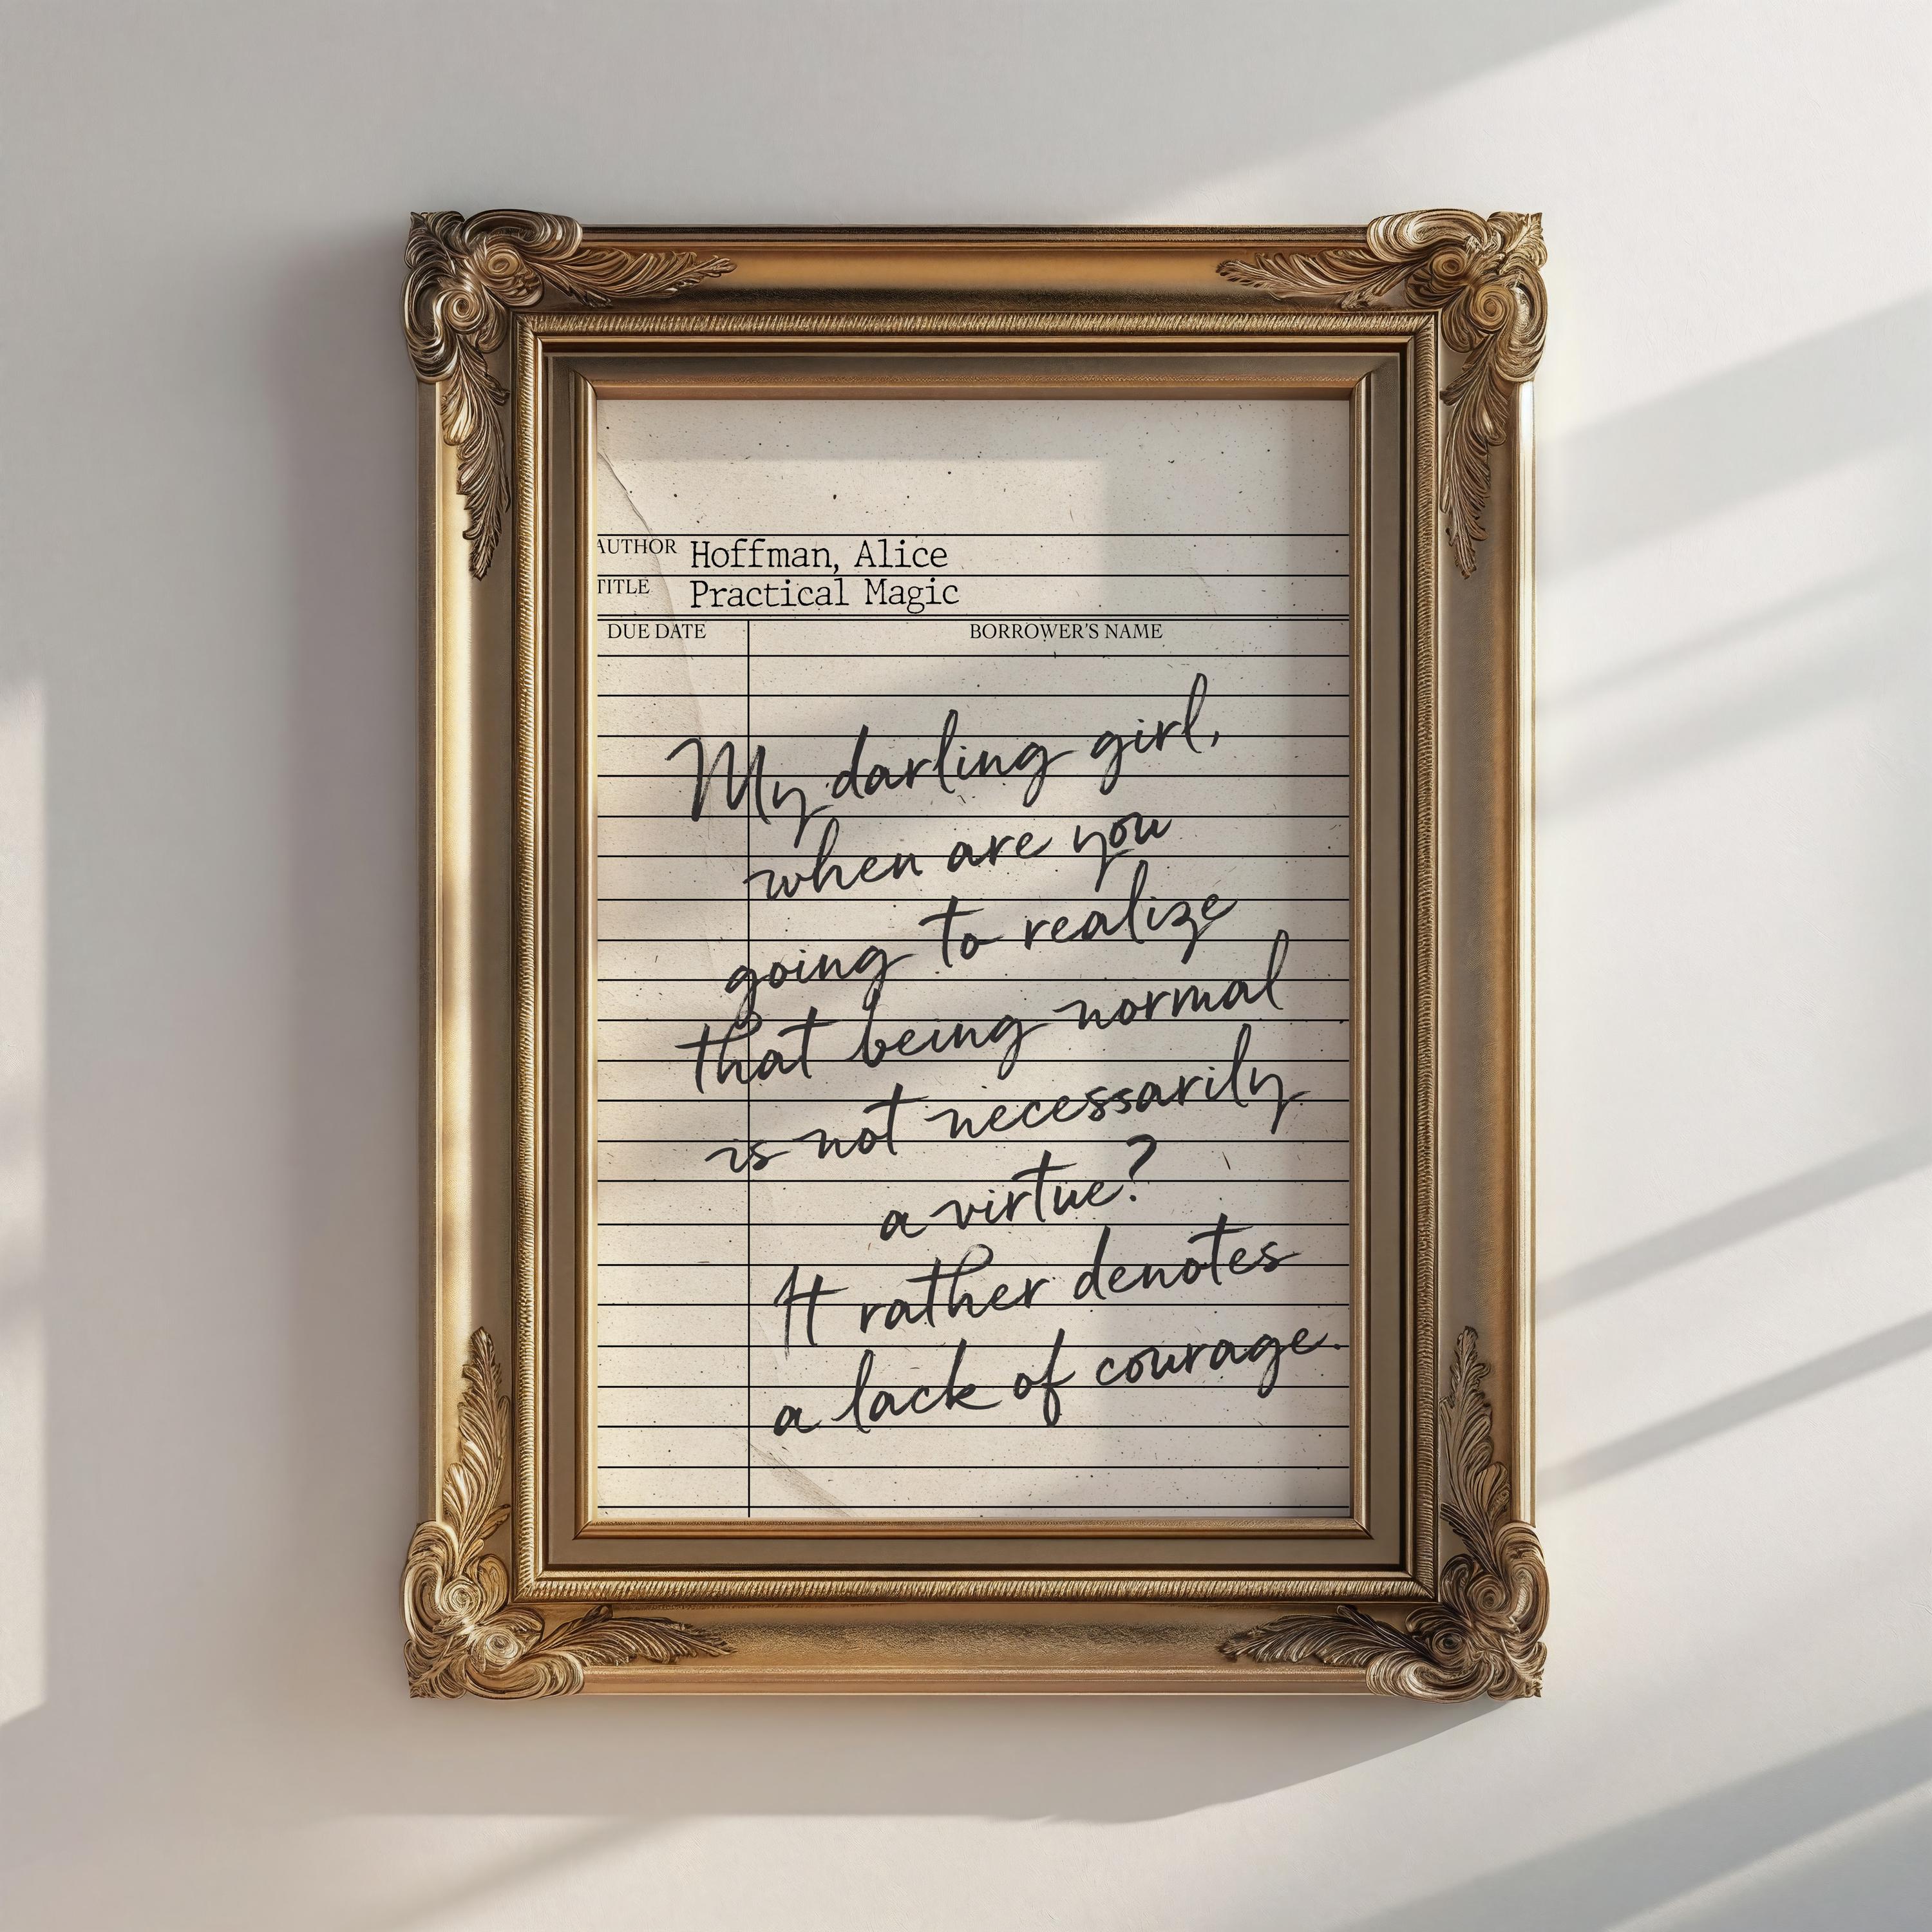 AUTHOR Hoffman, Alice
TITLE Practical Magic
DUE DATE BORROWER'S NAME
My darling girl,
when are you
going to realize
that being normal
is not necessarily
a virtue?
It rather denotes
a lack of courage.